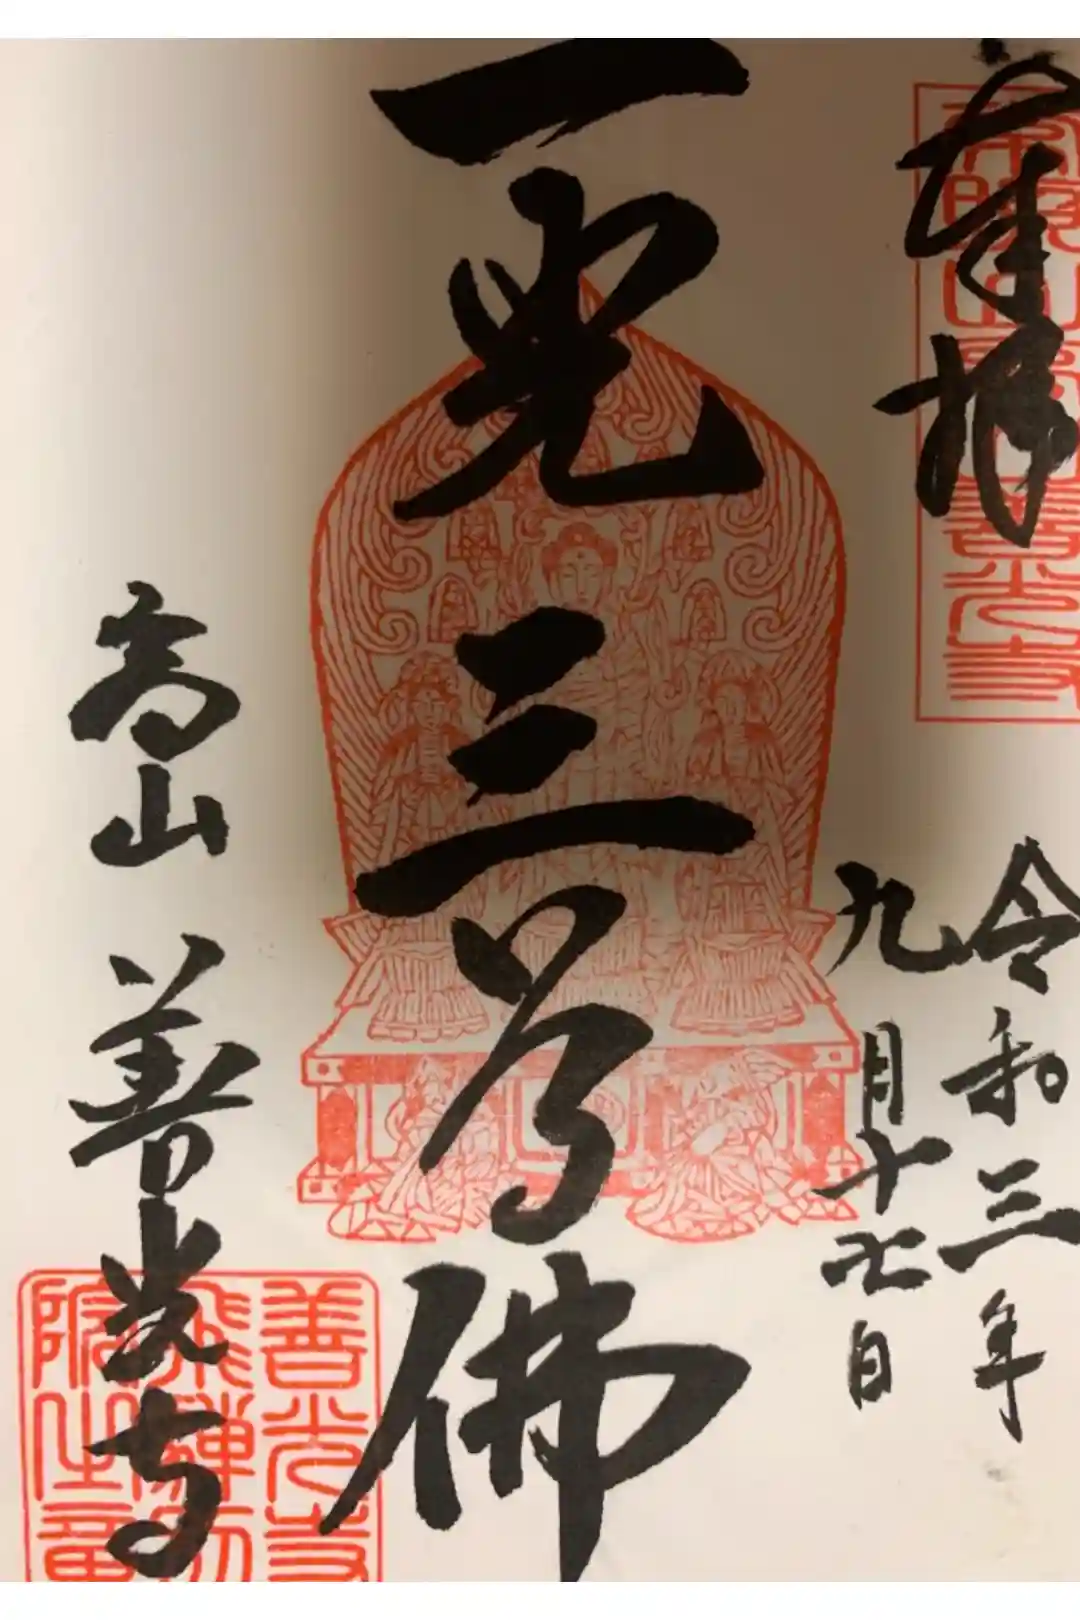 奉拝
令和三年
九月十七日
一光三尊佛
高山 善光寺
善光寺
飛騨別
院之章